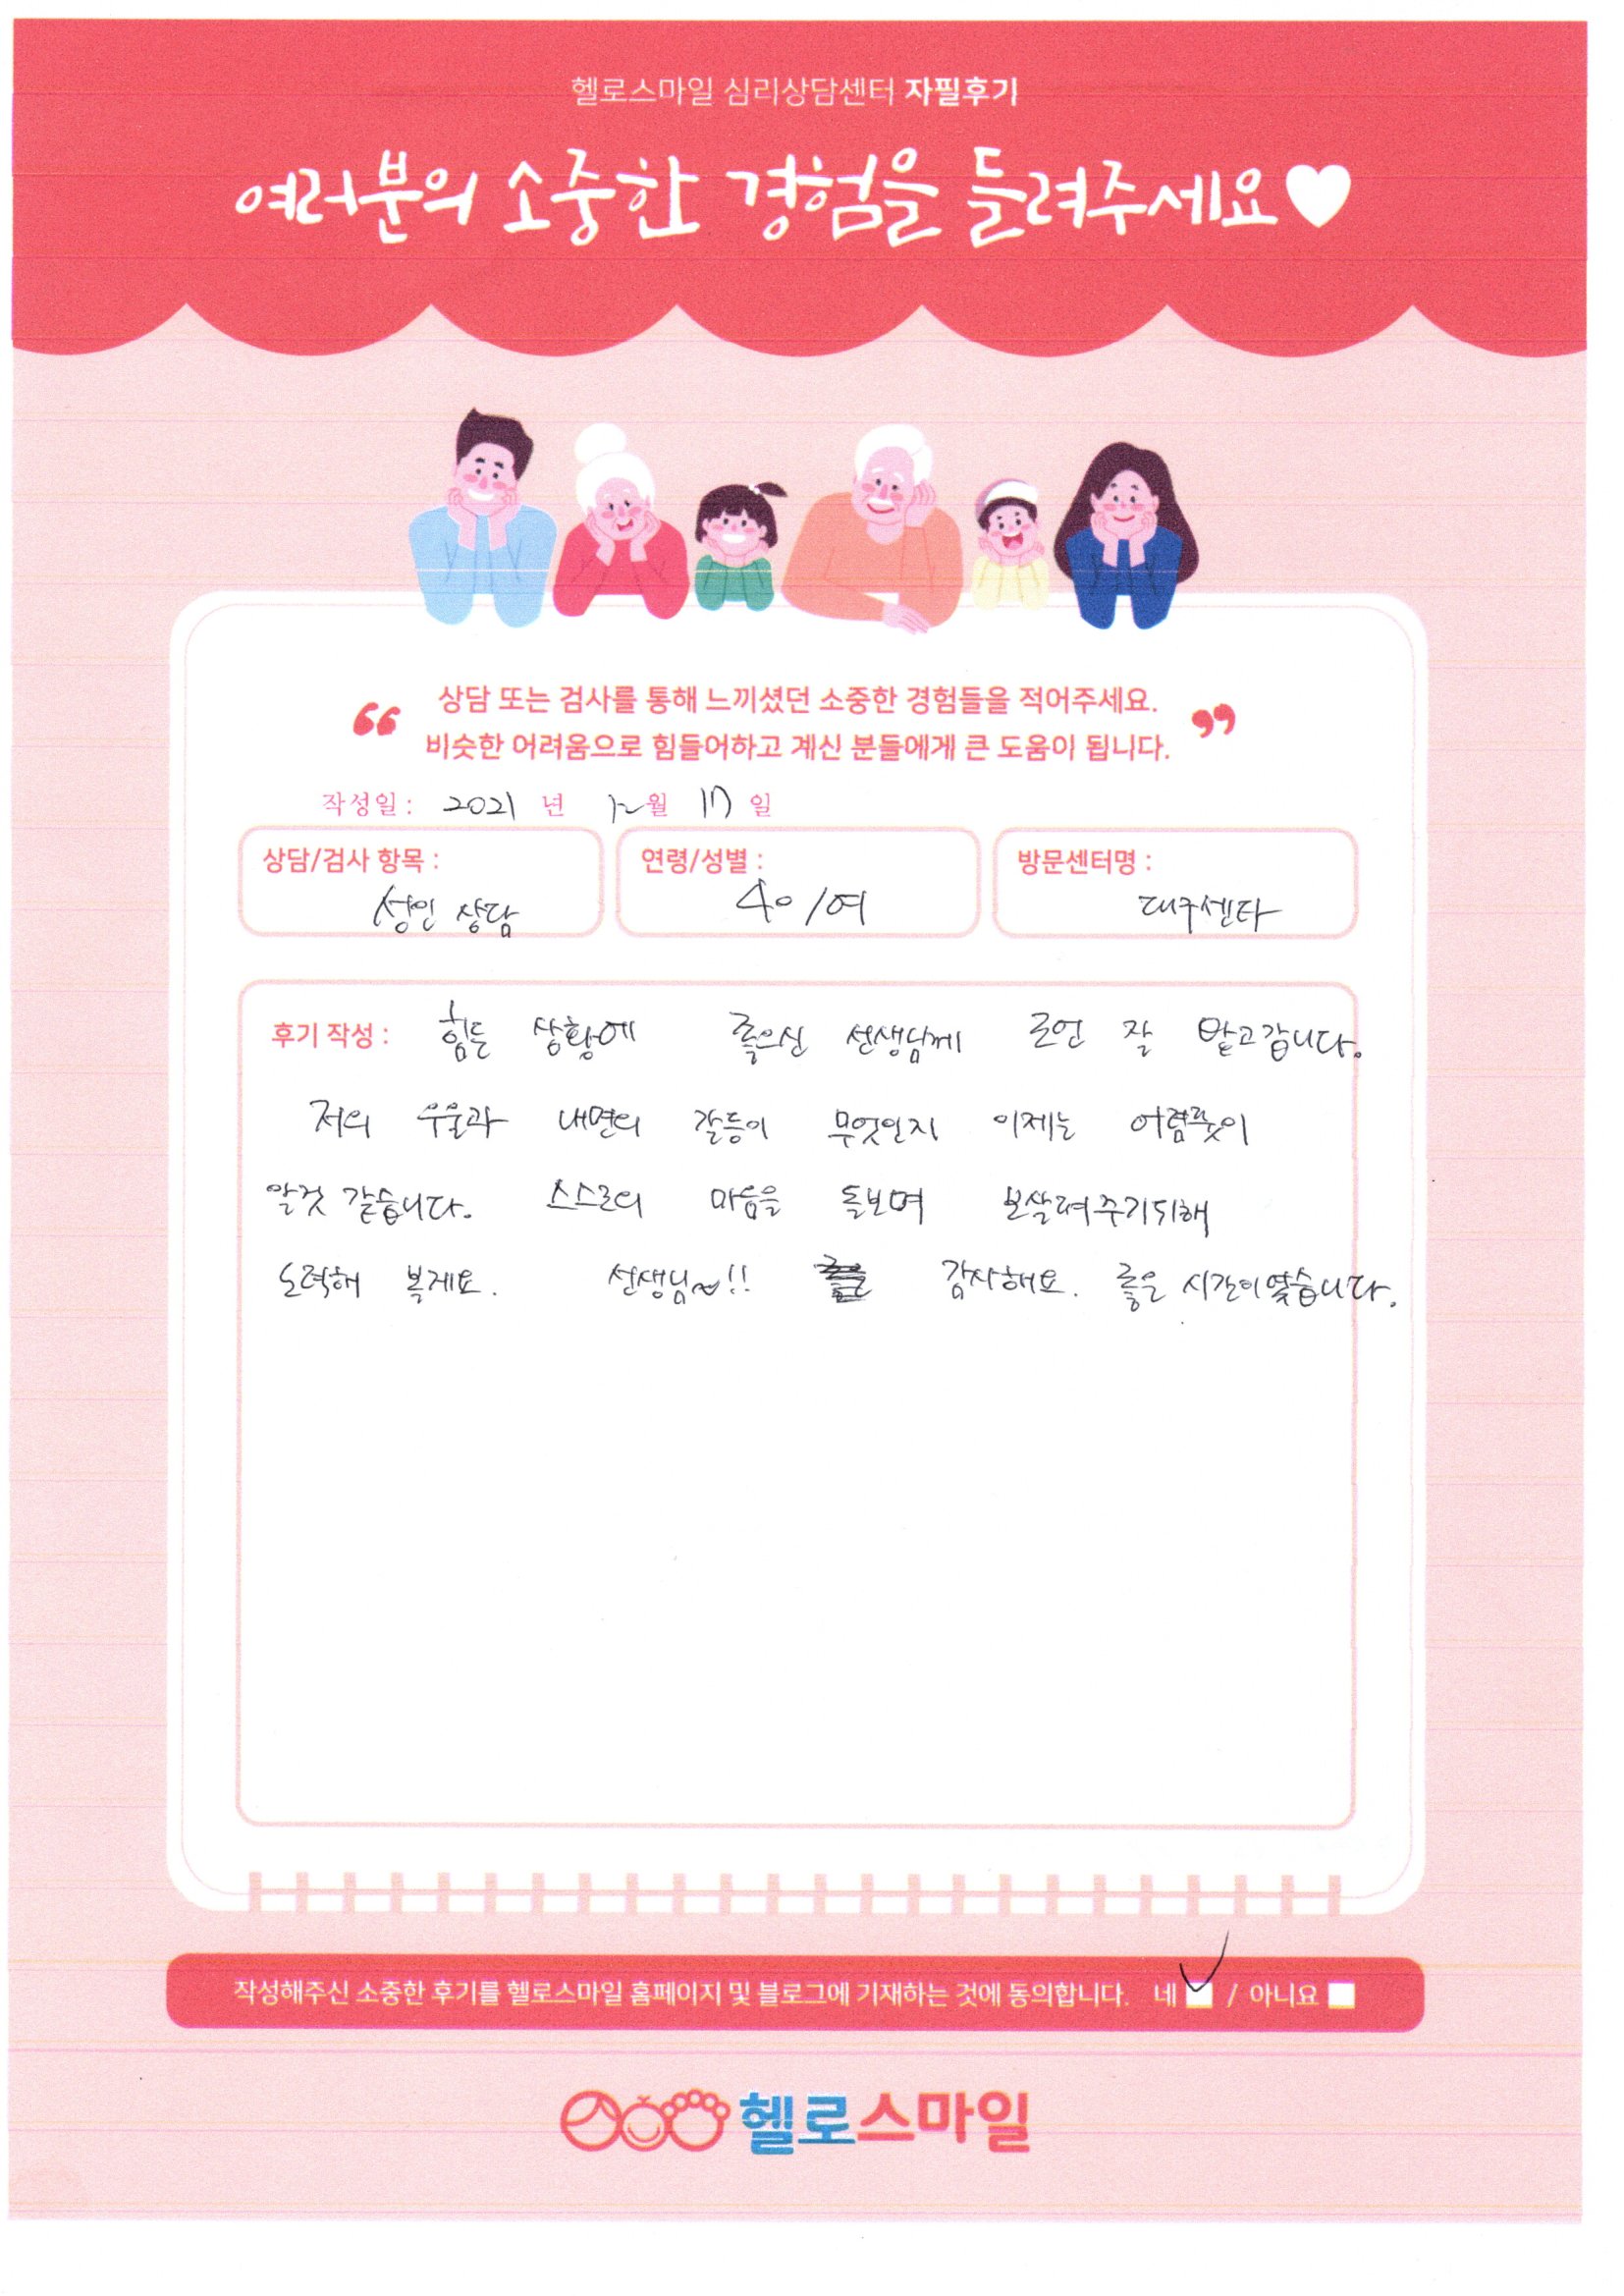 헬로스마일 심리상담센터 자필후기
여러분의 소중한 경험을 들려주세요♥
“ 상담 또는 검사를 통해 느끼셨던 소중한 경험들을 적어주세요.
비슷한 어려움으로 힘들어하고 계신 분들에게 큰 도움이 됩니다. ”
작성일 : 2021 년 12월 17 일
상담/검사 항목 : 연령/성별 : 방문센터명 :
성인 상담 40 /여 대구센타
후기 작성 : 힘든 상황에 좋으신 선생님께 조언 잘 맏고갑니다.
저의 우울과 내면의 갈등이 무엇인지 이제는 어렴풋이
알것 같습니다. 스스로의 마음을 돌보며 보살려주기위해
노력해 볼게요. 선생님~!! 감사해요. 좋은 시간이였습니다.
작성해주신 소중한 후기를 헬로스마일 홈페이지 및 블로그에 기재하는 것에 동의합니다. 네 / 아니요
헬로스마일